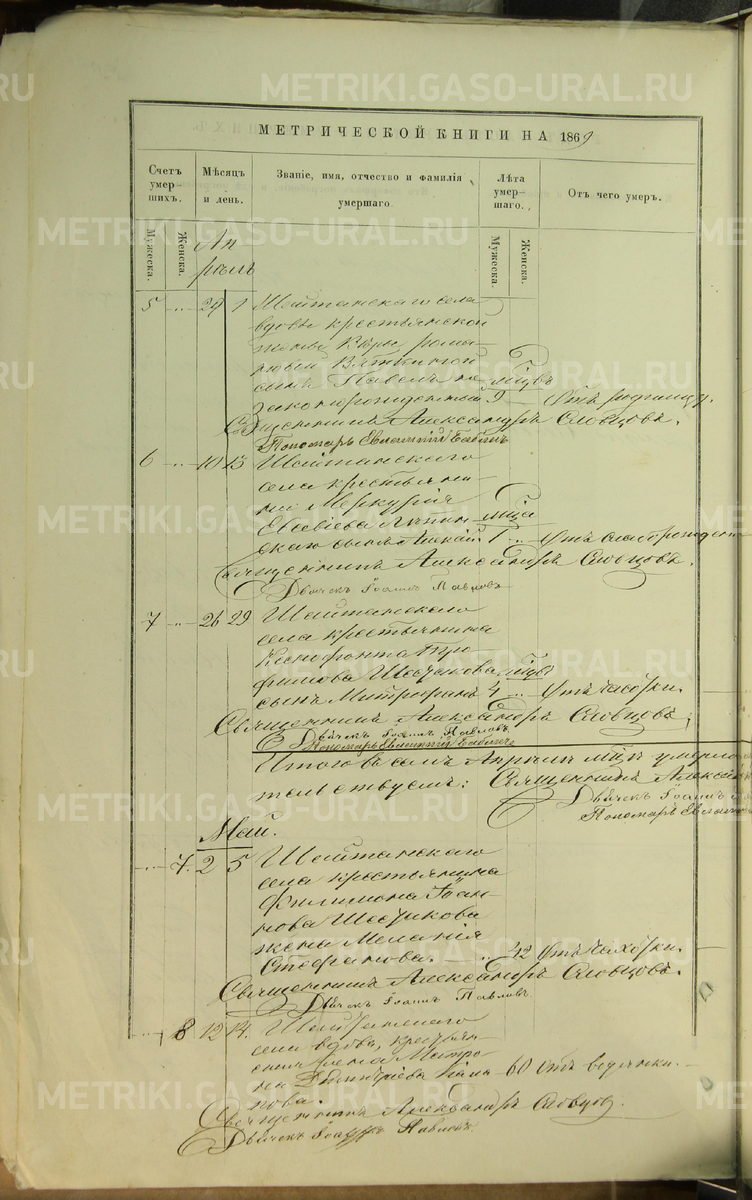 METRIKI.GASO-URAL.RU
МЕТРИЧЕСКОЙ КНИГИ НА 1869
Счетъ умершихъ.
Мѣсяцъ и день.
Званіе, имя, отчество и фамилія умершаго.
Лѣта умершаго.
Отъ чего умеръ.
Мужеска.
Женска.
Мужеска.
Женска.
Апрѣль
5 " 29 1 Шайтанскаго села
вдовы крестьянской
жены
сынъ Павелъ не мцвъ
законнорожденный 9 Отъ родимцу.
Священникъ Александръ Словцовъ.
Пономарь Евлампій Бабинъ
6 " 10 13 Шайтанскаго
села крестьяни-
на Меркурія
сынъ 1 " Отъ слаборожден
Священникъ Александръ Словцовъ.
Дьячекъ Іоаннъ Павловъ
7 " 26 29 Шайтанскаго
села крестьянина
Ксенофонта Тро
фимова мцвъ
сынъ Митрофанъ 4 " Отъ чахотки.
Священникъ Александръ Словцовъ;
Дьячекъ Іоаннъ Павловъ.
Пономарь Евлампій Бабинъ
Итого въ семъ Апрѣлѣ мцѣ умерло
тельствуемъ: Священникъ Алекса
Дьячекъ Іоаннъ
Пономарь Евламп
Май.
" 7. 2 5 Шайтанскаго
села крестьянина
Филимона Іоан-
нова
жена Меланія
Стефанова. " 42 Отъ чахотки.
Священникъ Александръ Словцовъ.
Дьячекъ Іоаннъ Павловъ.
" 8 12 14. Шайтанскаго
села вдова, крестьян
жена Матро
на Дмитріева 60 Отъ водянки.
нова.
Священникъ Александръ Словцовъ.
Дьячекъ Іоаннъ Павловъ.